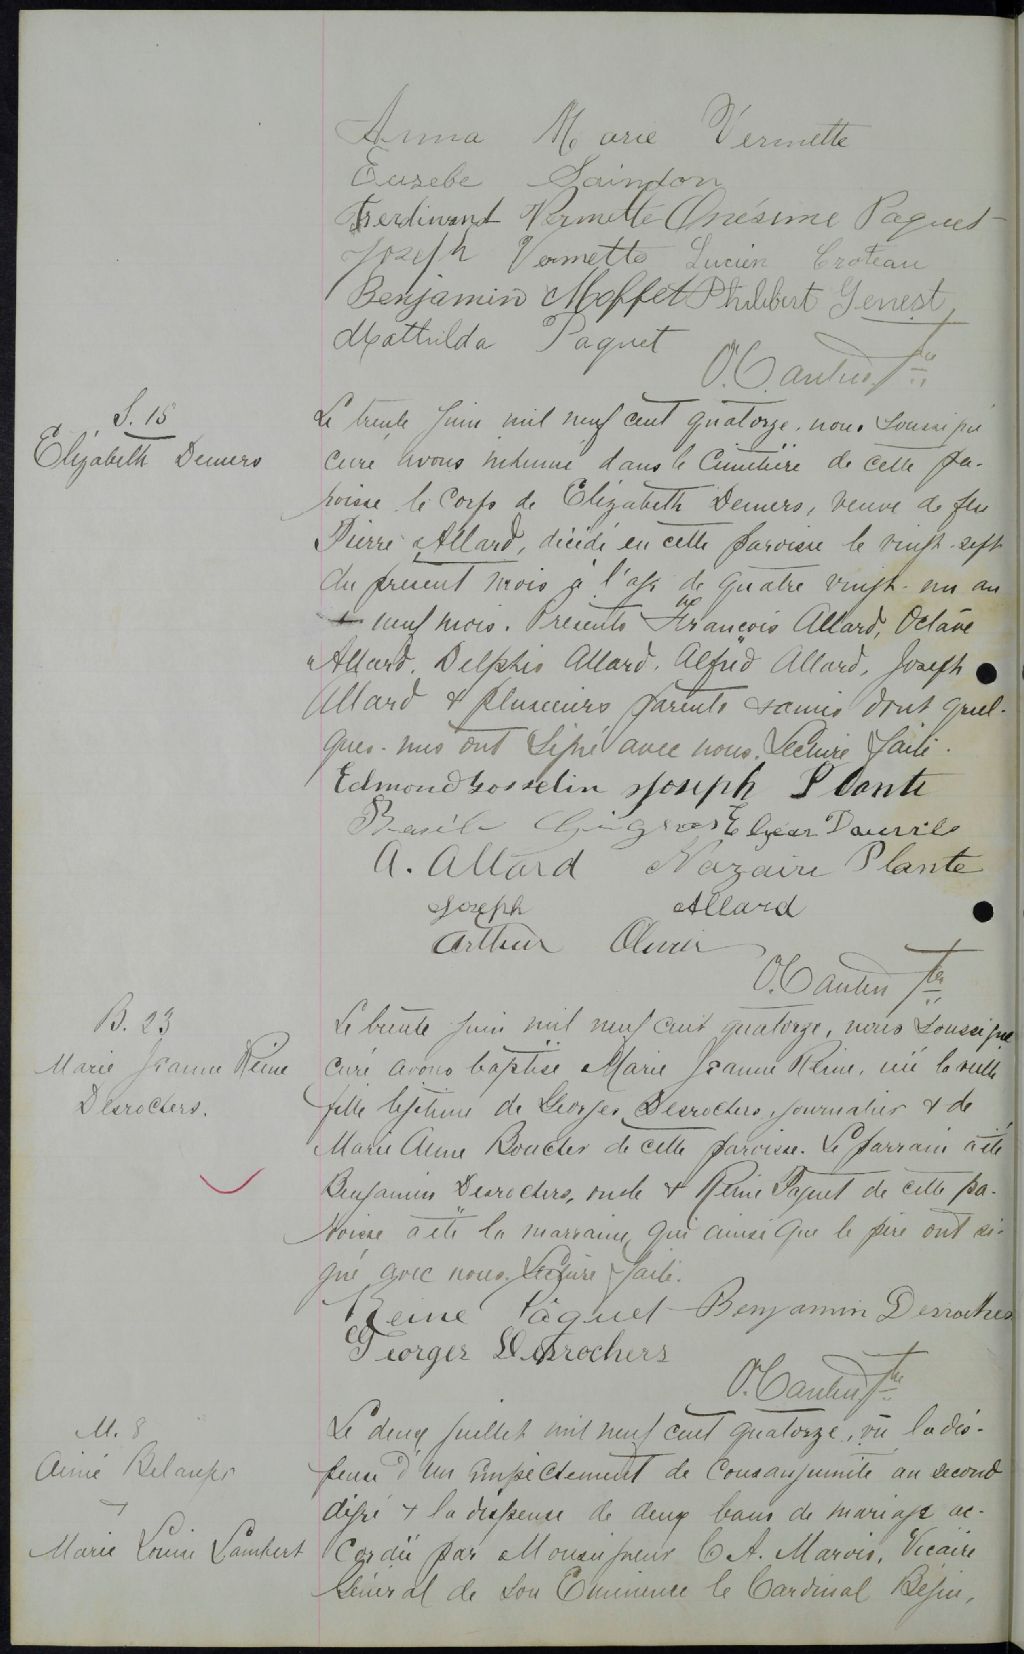 Anna Marie Vermette
Eusebe Saindon
Ferdinant Vermette Onésime Paquet
Joseph Vermette Lucien Croteau
Benjamin Moffet Philibert Genest
Mathilda Paquet
S. 15
Elizabeth Demers
Le trente Juin mil neuf cent quatorze, nous soussigné
curé avons inhumé dans le Cimetière de cette pa-
roisse le corps de Elizabeth Demers, veuve de feu
Pierre Allard, décédé en cette paroisse le vingt-sept
du present mois à l'age de quatre vingt-un an
neuf mois. Présents François Allard, Octave
Allard, Delphis Allard, Alfred Allard, Joseph
Allard & plusieurs parents & amis dont quel-
ques-uns ont signé avec nous. Lecture faite.
Edmond Gosselin Joseph Plante
Basile Gingras Elzear
A. Allard Nazaire Plante
Joseph Allard
Arthur Olivier
B. 23
Marie Jeanne Reine
Desrochers.
Le trente Juin mil neuf cent quatorze, nous soussigné
curé avons baptisé Marie Jeanne Reine, née la veille
fille légitime de Georges Desrochers, journalier & de
Marie Anne Boucher de cette paroisse. Le parrain a été
Benjamin Desrochers, oncle & Reine Paquet de cette pa-
roisse a été la marraine, qui ainsi que le père ont si-
gné avec nous. Lecture faite.
Reine Pâquet Benjamin Desrochers
Georges Desrochers
M. 8
Aimé Belanger
&
Marie Louise Lambert
Le deux Juillet mil neuf cent quatorze, vu la dis-
pense d'un empêchement de consanguinité au second
degré & la dispense de deux bans de mariage ac-
cordée par Monseigneur C. A. Marois, Vicaire
Général de Son Eminence le Cardinal Bégin,